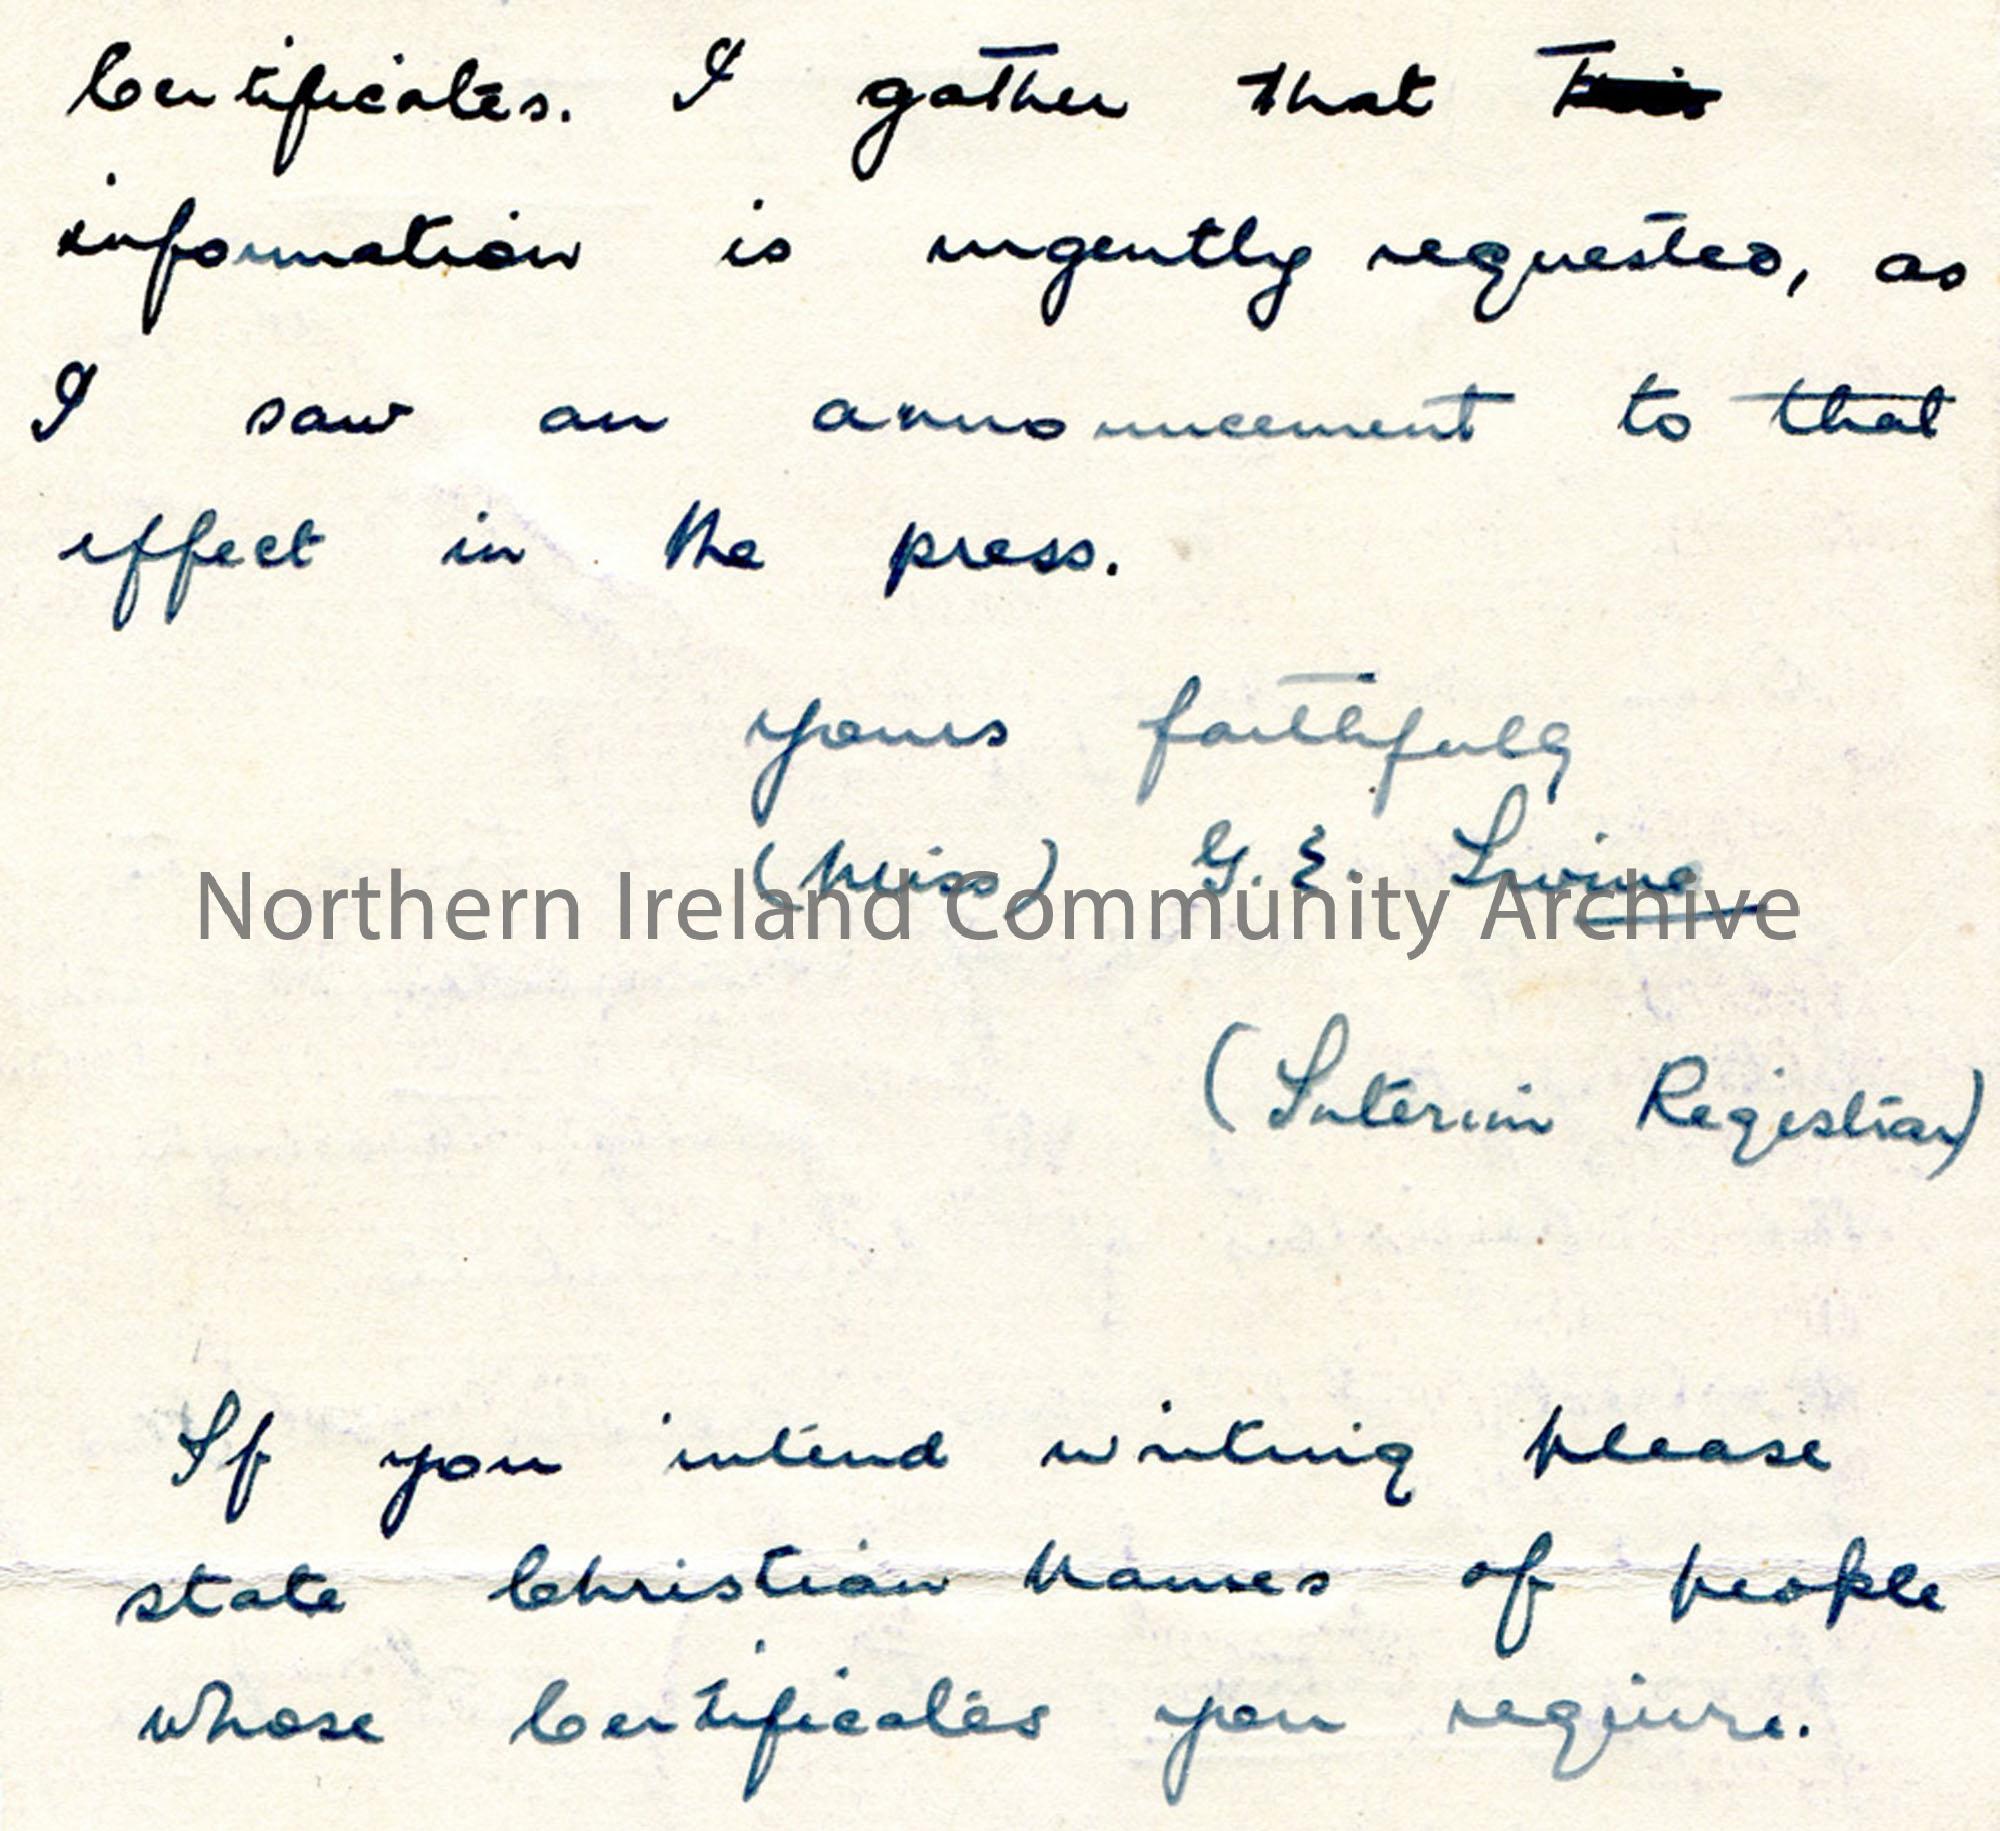 Certificates. I gather that this
information is urgently requested, as
I saw an announcement to that
effect in the press.
yours faithfully
(Miss) G. E. Irvine
Northern Ireland Community Archive
(Interim Registrar)
If you intend writing please
state Christian Names of people
whose Certificates you require.